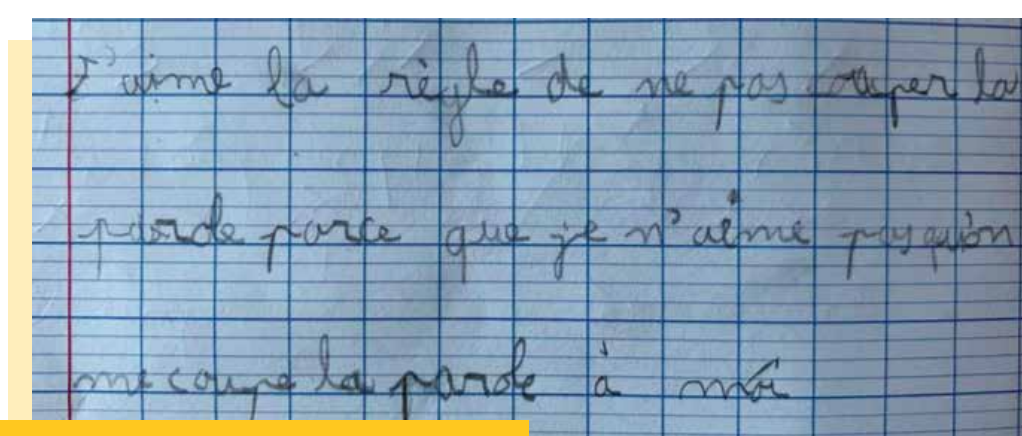 J'aime la règle de ne pas couper la
parole parce que je n'aime pas qu'on
me coupe la parole à moi